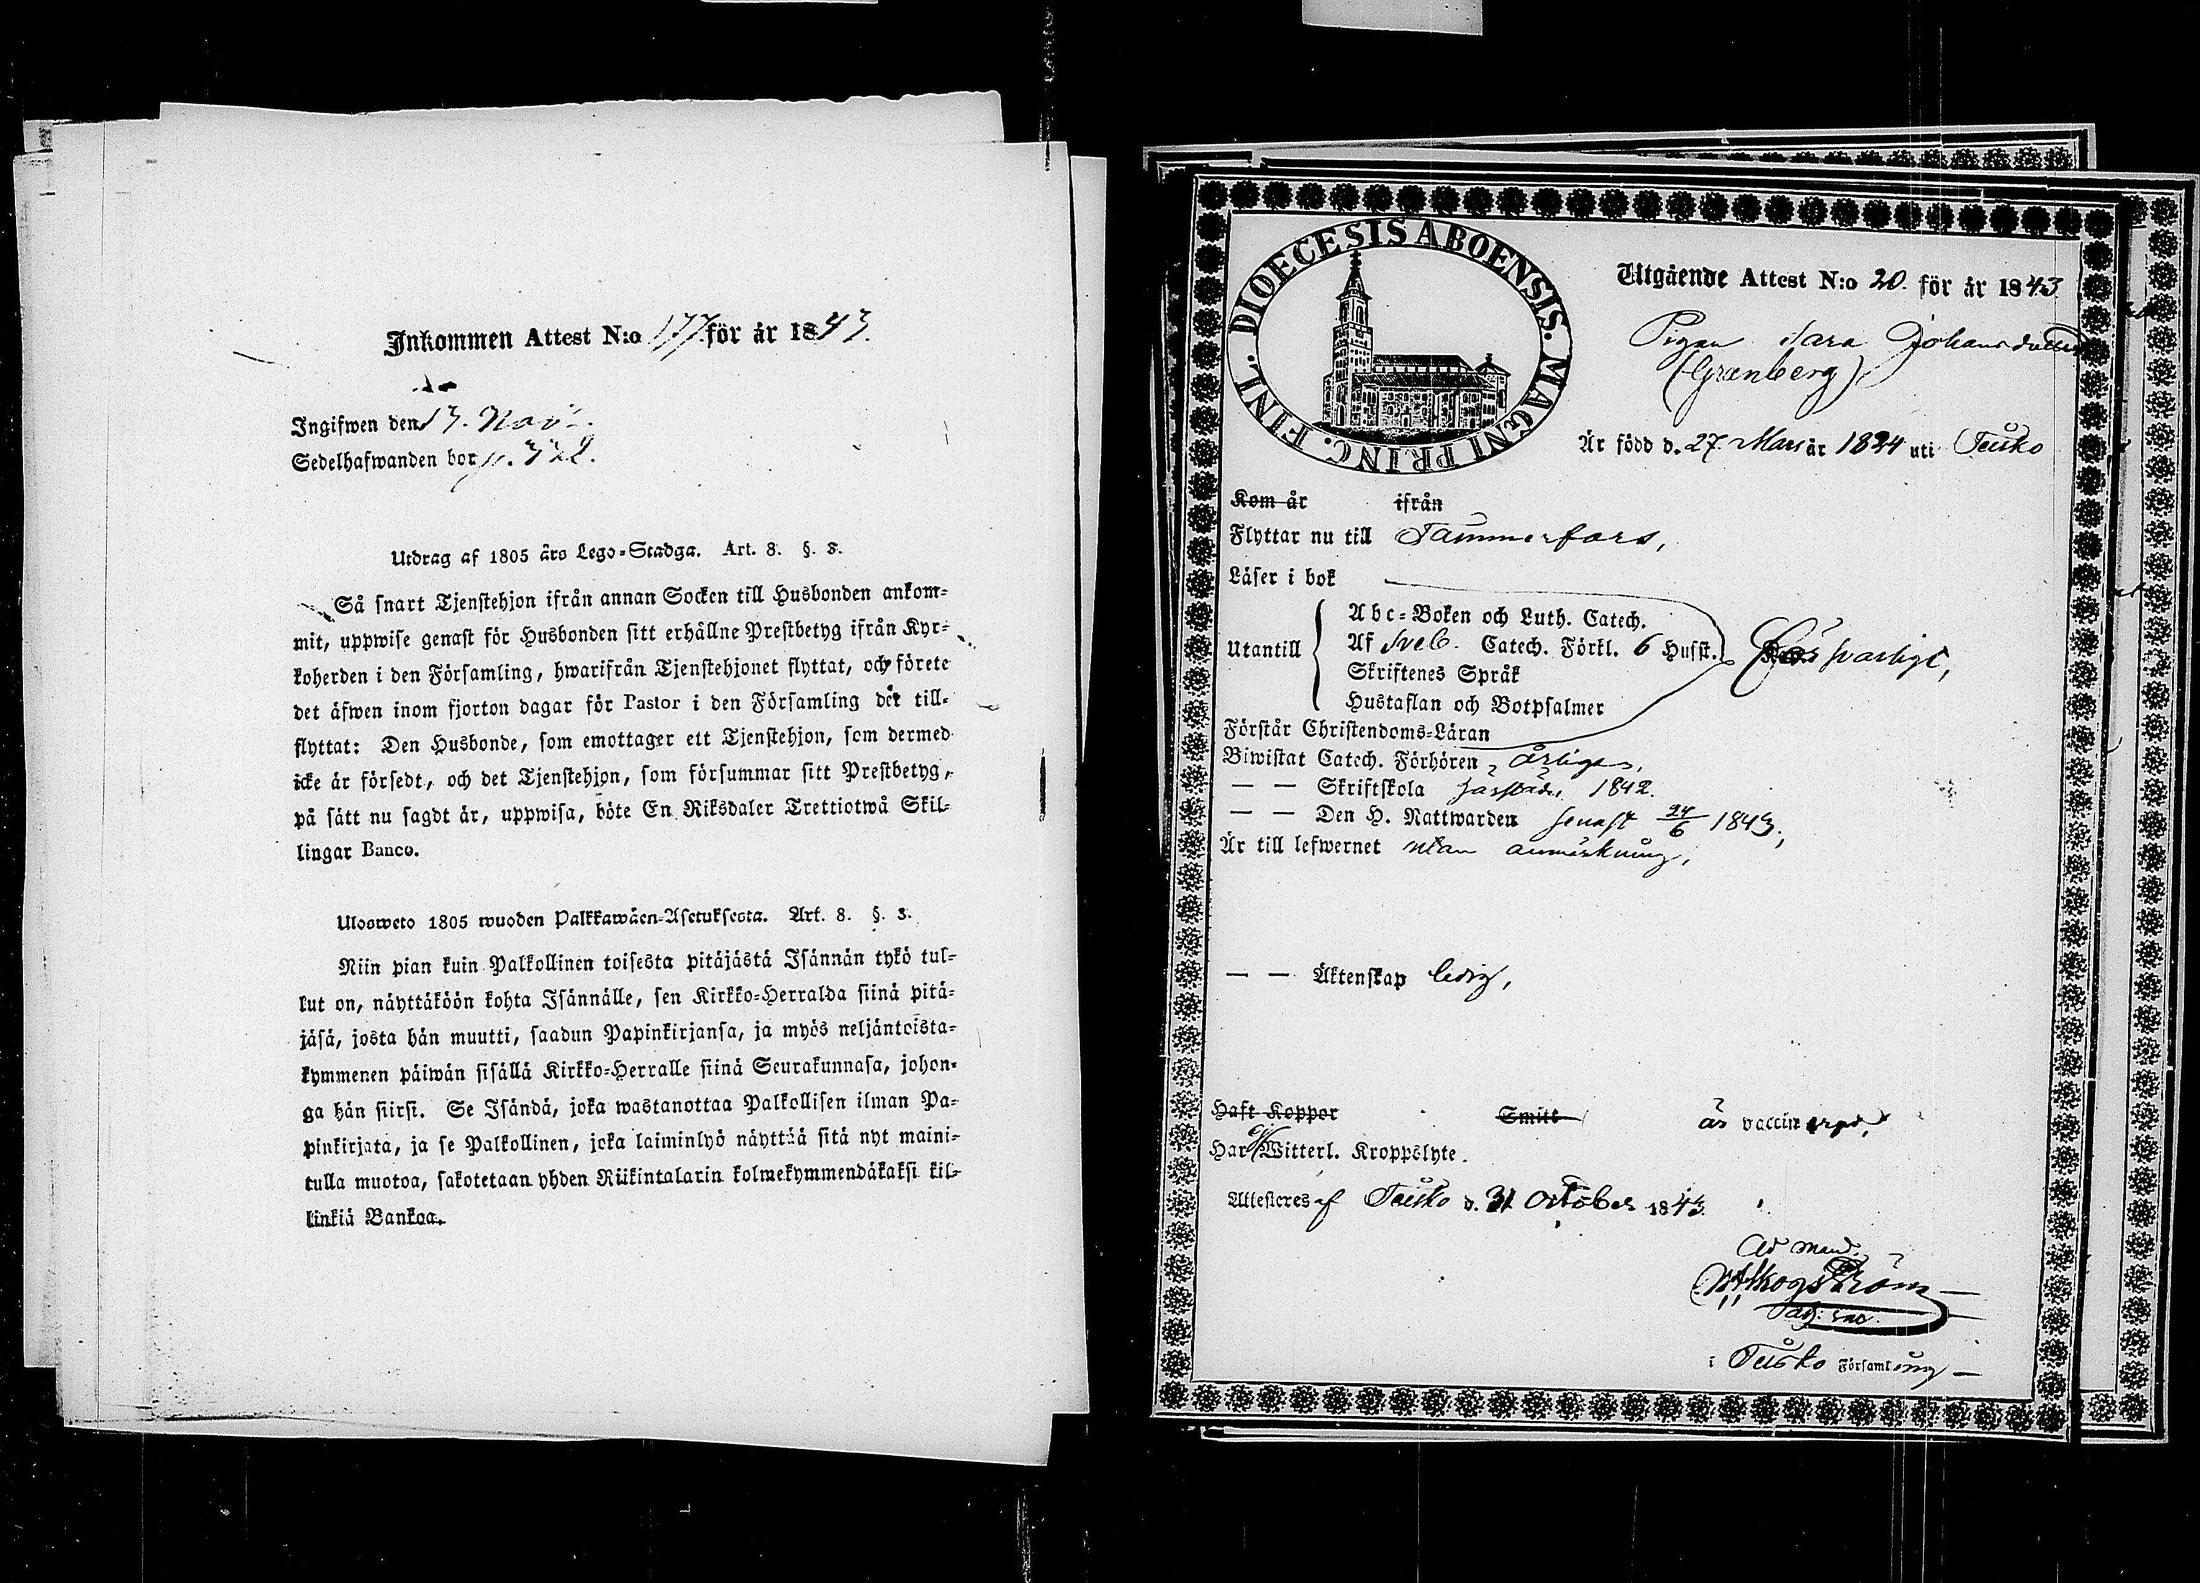 Inkommen Attest N:o 177 för år 1843.
Ingifwen den 13. Nov:
Sedelhafwanden bor p. 322.
Utdrag af 1805 års Lego-Stadga. Art. 8. §. 3.
Så snart Tjenstehjon ifrån annan Socken till Husbonden ankom-
mit, uppwise genast för Husbonden sitt erhållne Prestbetyg ifrån Kyr-
koherden i den Församling, hwarifrån Tjenstehjonet flyttat, och förete
det äfwen inom fjorton dagar för Pastor i den Församling der till-
flyttat: Den Husbonde, som emottager ett Tjenstehjon, som dermed
icke är försedt, och det Tjenstehjon, som försummar sitt Prestbetyg,
på sätt nu sagdt är, uppwisa, böte En Riksdaler Trettiotwå Skil-
lingar Banco.
Ulosweto 1805 wuoden Palkkawäen-Asetuksesta. Art. 8. §. 3.
Niin pian kuin Palkollinen toisesta pitäjästä Isännän tykö tul-
lut on, näyttäköön kohta Isännälle, sen Kirkko-Herralda siinä pitä-
jäsä, josta hän muutti, saadun Papinkirjansa, ja myös neljäntoista-
kymmenen päiwän sisällä Kirkko-Herralle siinä Seurakunnasa, johon-
ga hän siirsi. Se Isändä, joka wastanottaa Palkollisen ilman Pa-
pinkirjata, ja se Palkollinen, joka laiminlyö näyttää sitä nyt maini-
tulla muotoa, sakotetaan yhden Riikintalarin kolmekymmendäkaksi kil-
linkiä Bankoa.
DIOECESIS ABOENSIS. MAGNI PRINC. FINL.
Utgående Attest N:o 20. för år 1843
Pigan Sara Johansdotter
(Grænberg)
Är född d. 27 Mars år 1824 uti Teisko
Kom år ifrån
Flyttar nu till Tammerfors,
Läser i bok
Abc-Boken och Luth. Catech.
Utantill Af Sveb. Catech. Förkl. 6 Hufst. försvarligt,
Skriftenes Språk
Hustaflan och Botpsalmer
Förstår Christendoms-Läran
Biwistat Catech. Förhören årligen,
— — Skriftskola 1842.
— — Den H. Nattwarden senast 24/6 1843,
Är till lefwernet utan anmärkning,
— — Äktenskap ledig,
Haft Koppor Smitt är vaccinerad,
Har ej Witterl. Kroppslyte.
Attesteres af Teisko d. 31 October 1843.
Ad mand.
Skogström
Adj: sac.
i Teisko Församling